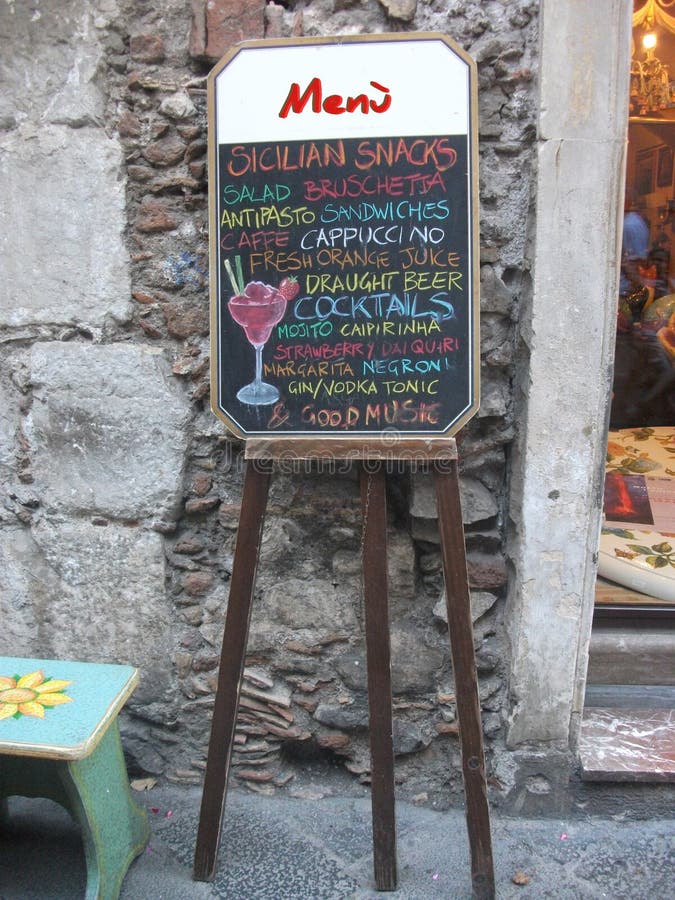 Menù
SICILIAN SNACKS
SALAD BRUSCHETTA
ANTIPASTO SANDWICHES
CAFFE CAPPUCCINO
FRESH ORANGE JUICE
DRAUGHT BEER
COCKTAILS
MOJITO CAIPIRINHA
STRAWBERRY DAIQUIRI
MARGARITA NEGRONI
GIN/VODKA TONIC
& GOOD MUSIC
dreamstime